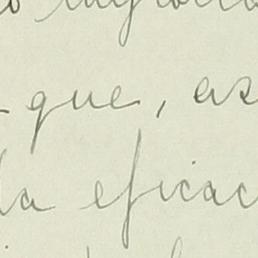 que, as
la eficac